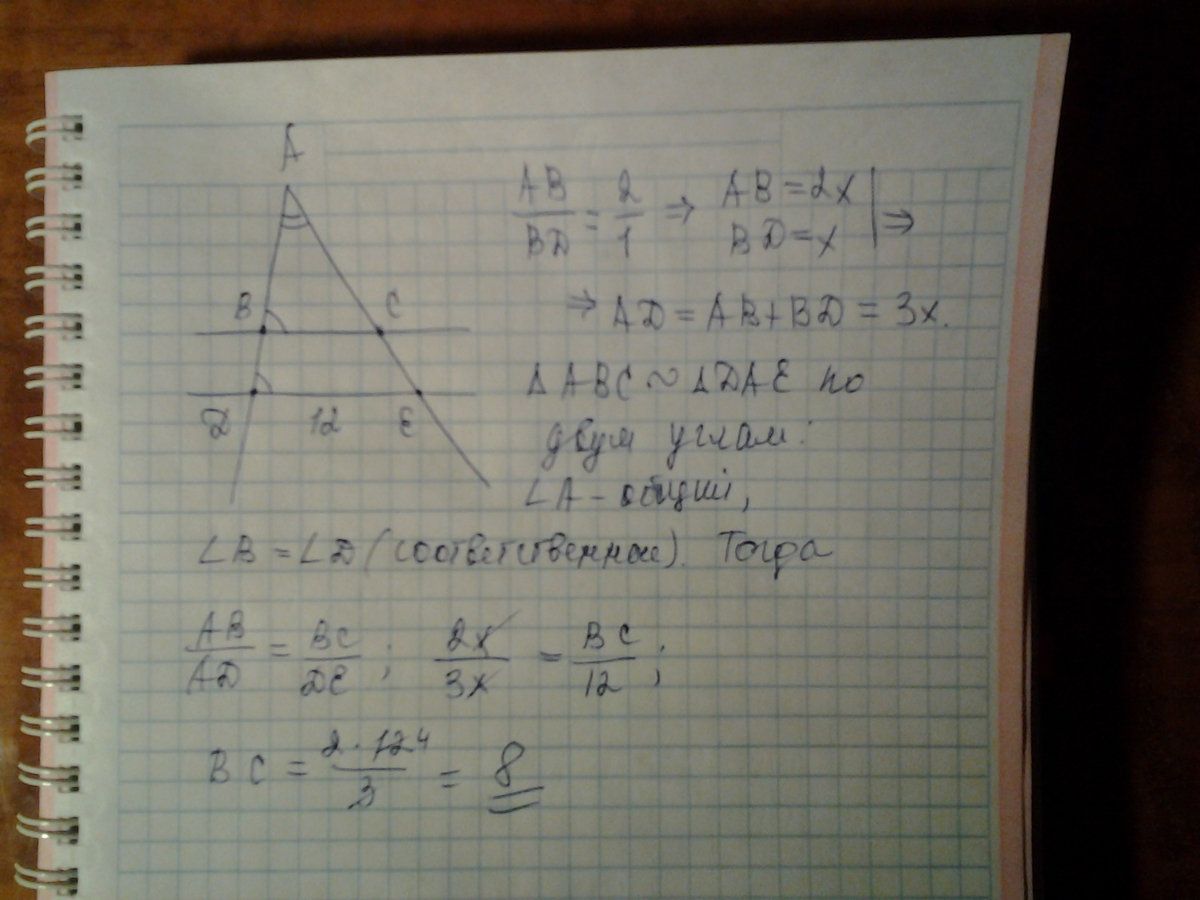 A
B C
D 12 E
AB/BD = 2/1 ⇒ AB = 2x | ⇒
BD = x
⇒ AD = AB + BD = 3x.
Δ ABC ~ Δ DAE по
двум углам:
∠A - общий,
∠B = ∠D (соответственные). Тогда
AB/AD = BC/DE ; 2x/3x = BC/12 ;
BC = 2·12 4/3 = 8